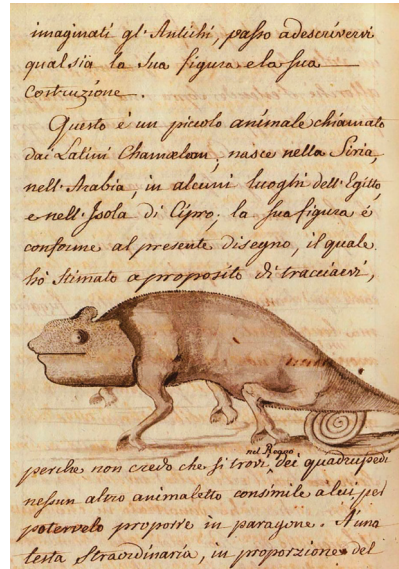 imaginati gl'Antichi, passo adescrivervi
qual sia la sua figura e la sua
Costruzione.
Questo è un piccolo animale chiamato
dai Latini Chamæleon, nasce nella Siria,
nell'Arabia, in alcuni luoghi dell'Egitto,
e nell'Isola di Cipro; la sua figura é
conforme al presente disegno, il quale
hò stimato a proposito di tracciarvi,
perche non credo che si trovi nel Regno dei quadrupedi
nessun altro animaletto consimile a lui per
potervelo proporre in paragone. A' una
testa straordinaria, in proporzione del